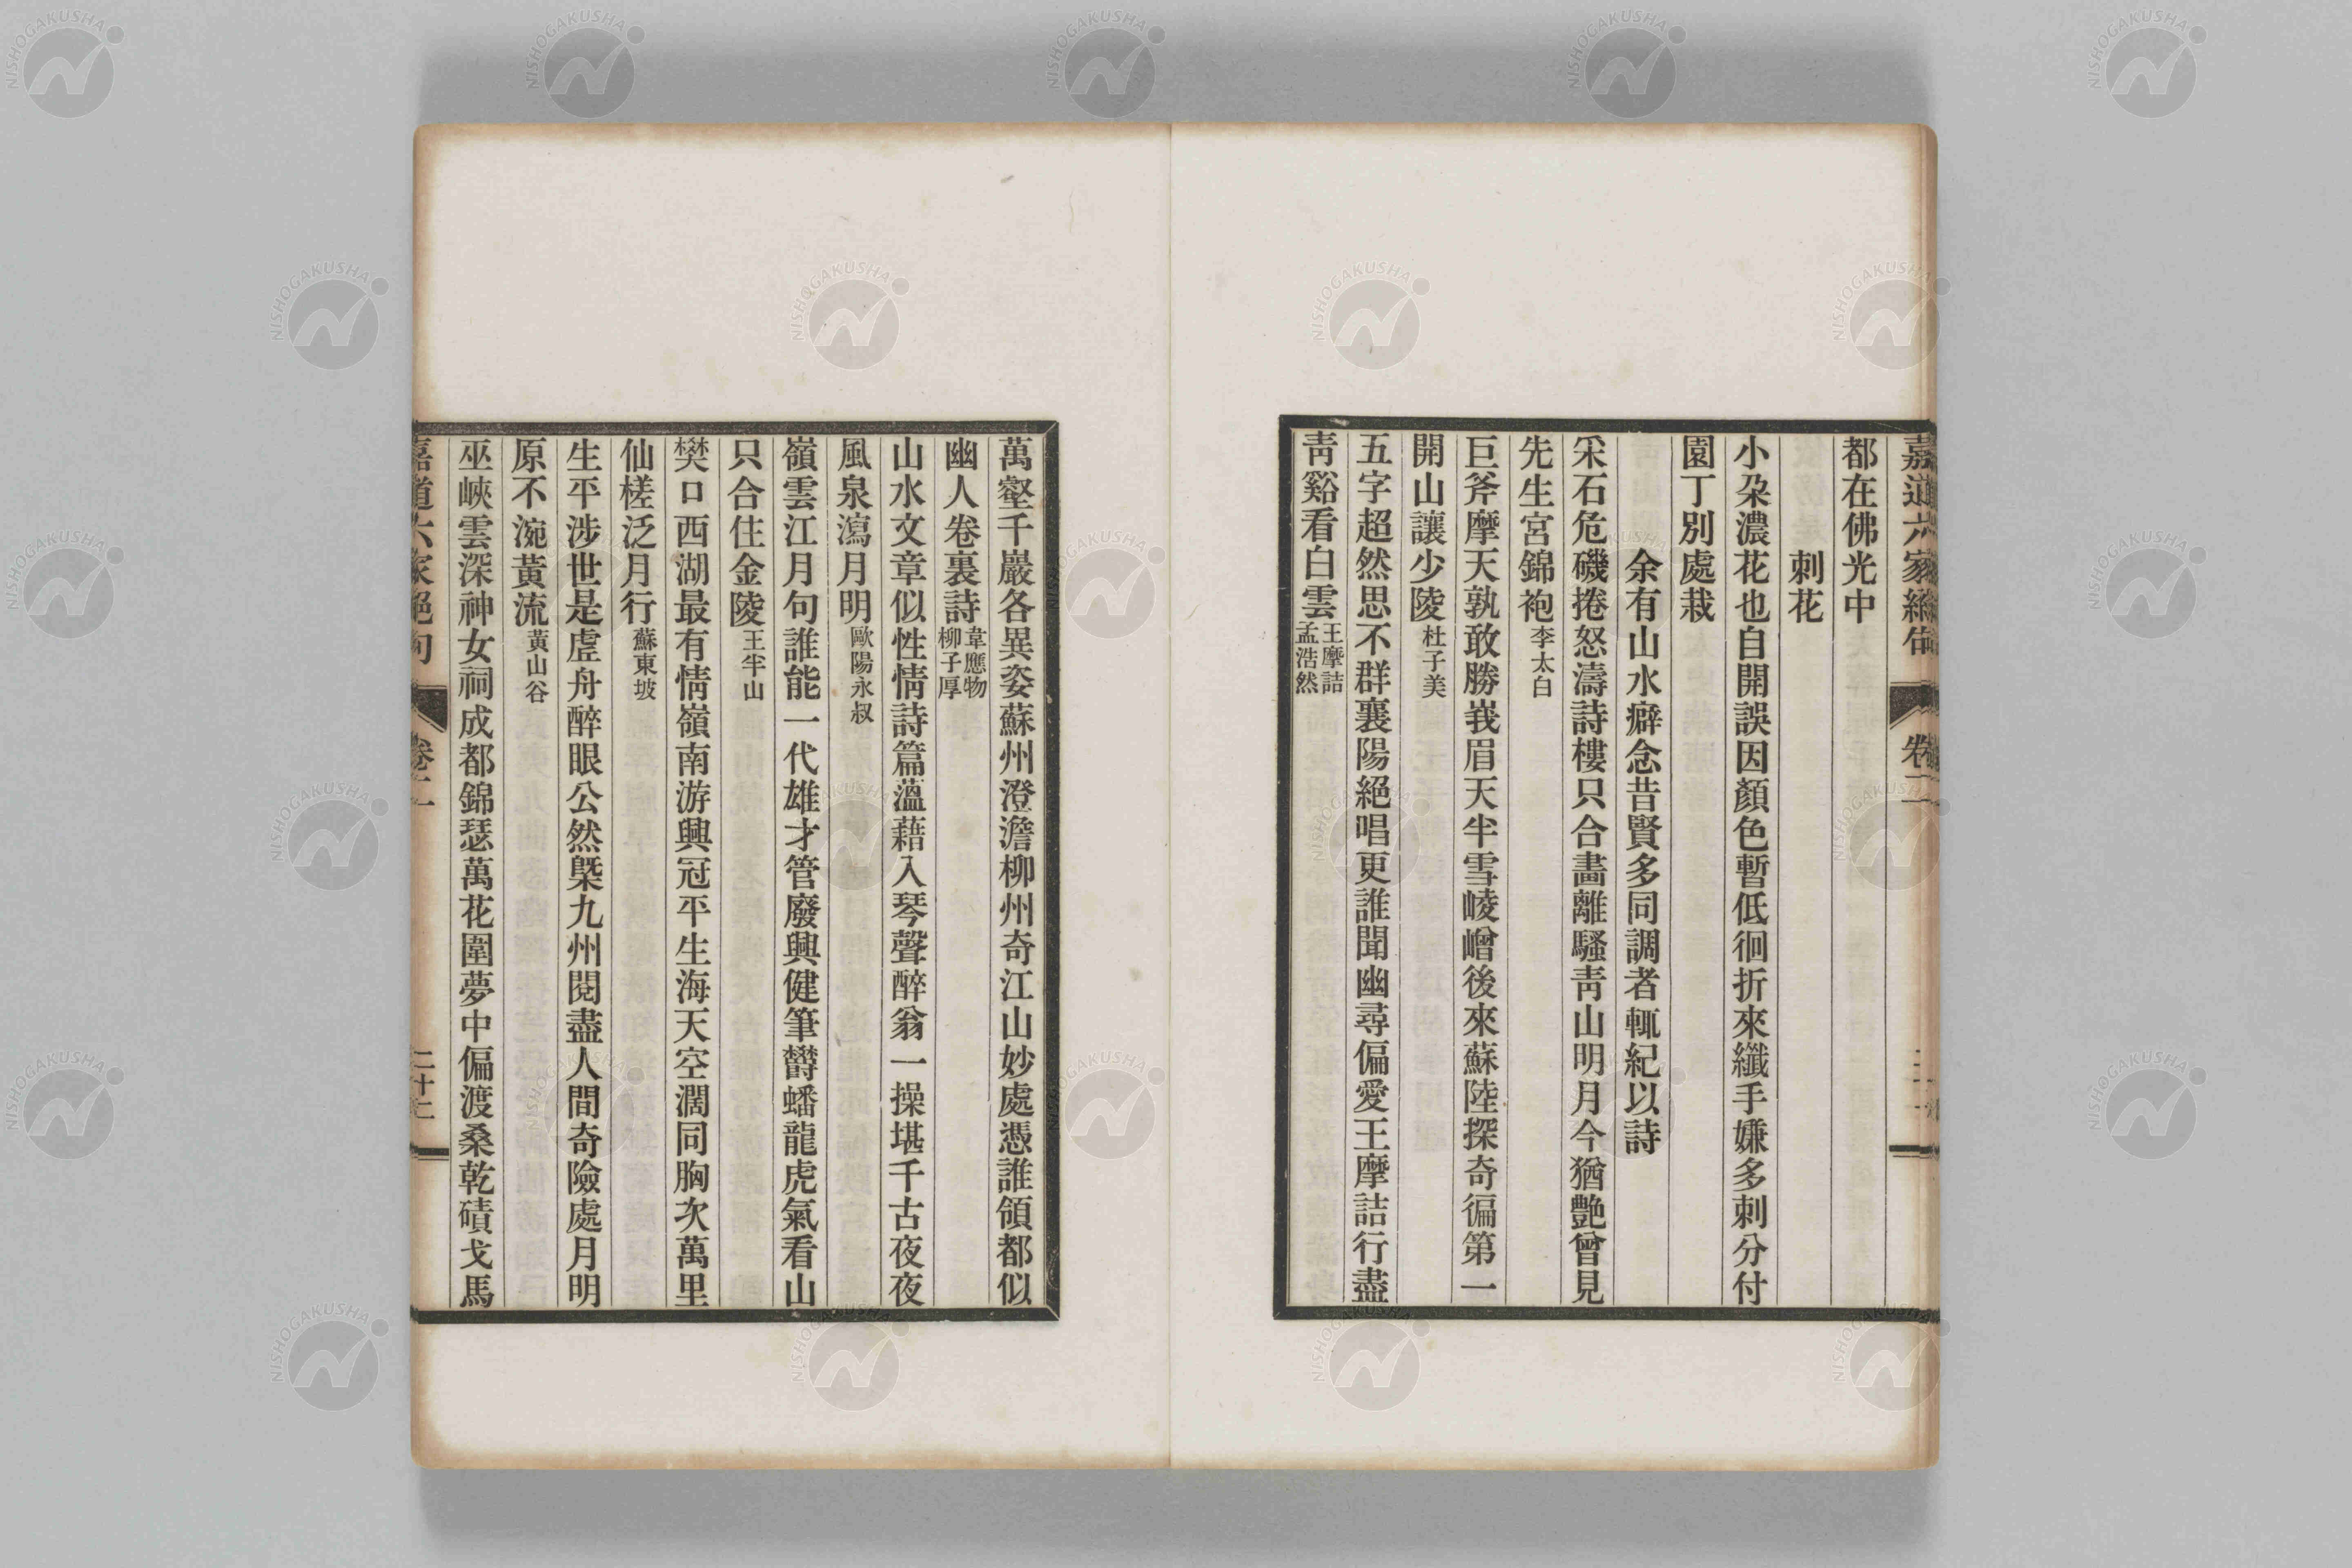 嘉道六家絕句 卷二
都在佛光中
刺花
小朶濃花也自開誤因顏色暫低徊折來纖手嫌多刺分付
園丁別處栽
余有山水癖念昔賢多同調者輒紀以詩
采石危磯捲怒濤詩樓只合畵離騷靑山明月今猶艷曾見
先生宮錦袍李太白
巨斧摩天孰敢勝峩眉天半雪崚嶒後來蘇陸探奇徧第一
開山讓少陵杜子美
五字超然思不群襄陽絕唱更誰聞幽尋偏愛王摩詰行盡
靑谿看白雲王摩詰孟浩然
萬壑千巖各異姿蘇州澄澹柳州奇江山妙處憑誰領都似
幽人卷裏詩韋應物柳子厚
山水文章似性情詩篇薀藉入琴聲醉翁一操堪千古夜夜
風泉瀉月明歐陽永叔
嶺雲江月句誰能一代雄才管廢興健筆欝蟠龍虎氣看山
只合住金陵王半山
樊口西湖最有情嶺南游興冠平生海天空濶同胸次萬里
仙槎泛月行蘇東坡
生平涉世是虛舟醉眼公然槩九州閱盡人間奇險處月明
原不涴黃流黃山谷
巫峽雲深神女祠成都錦瑟萬花圍夢中偏渡桑乾磧戈馬
嘉道六家絕句 卷二 二十二
NISHOGAKUSHA